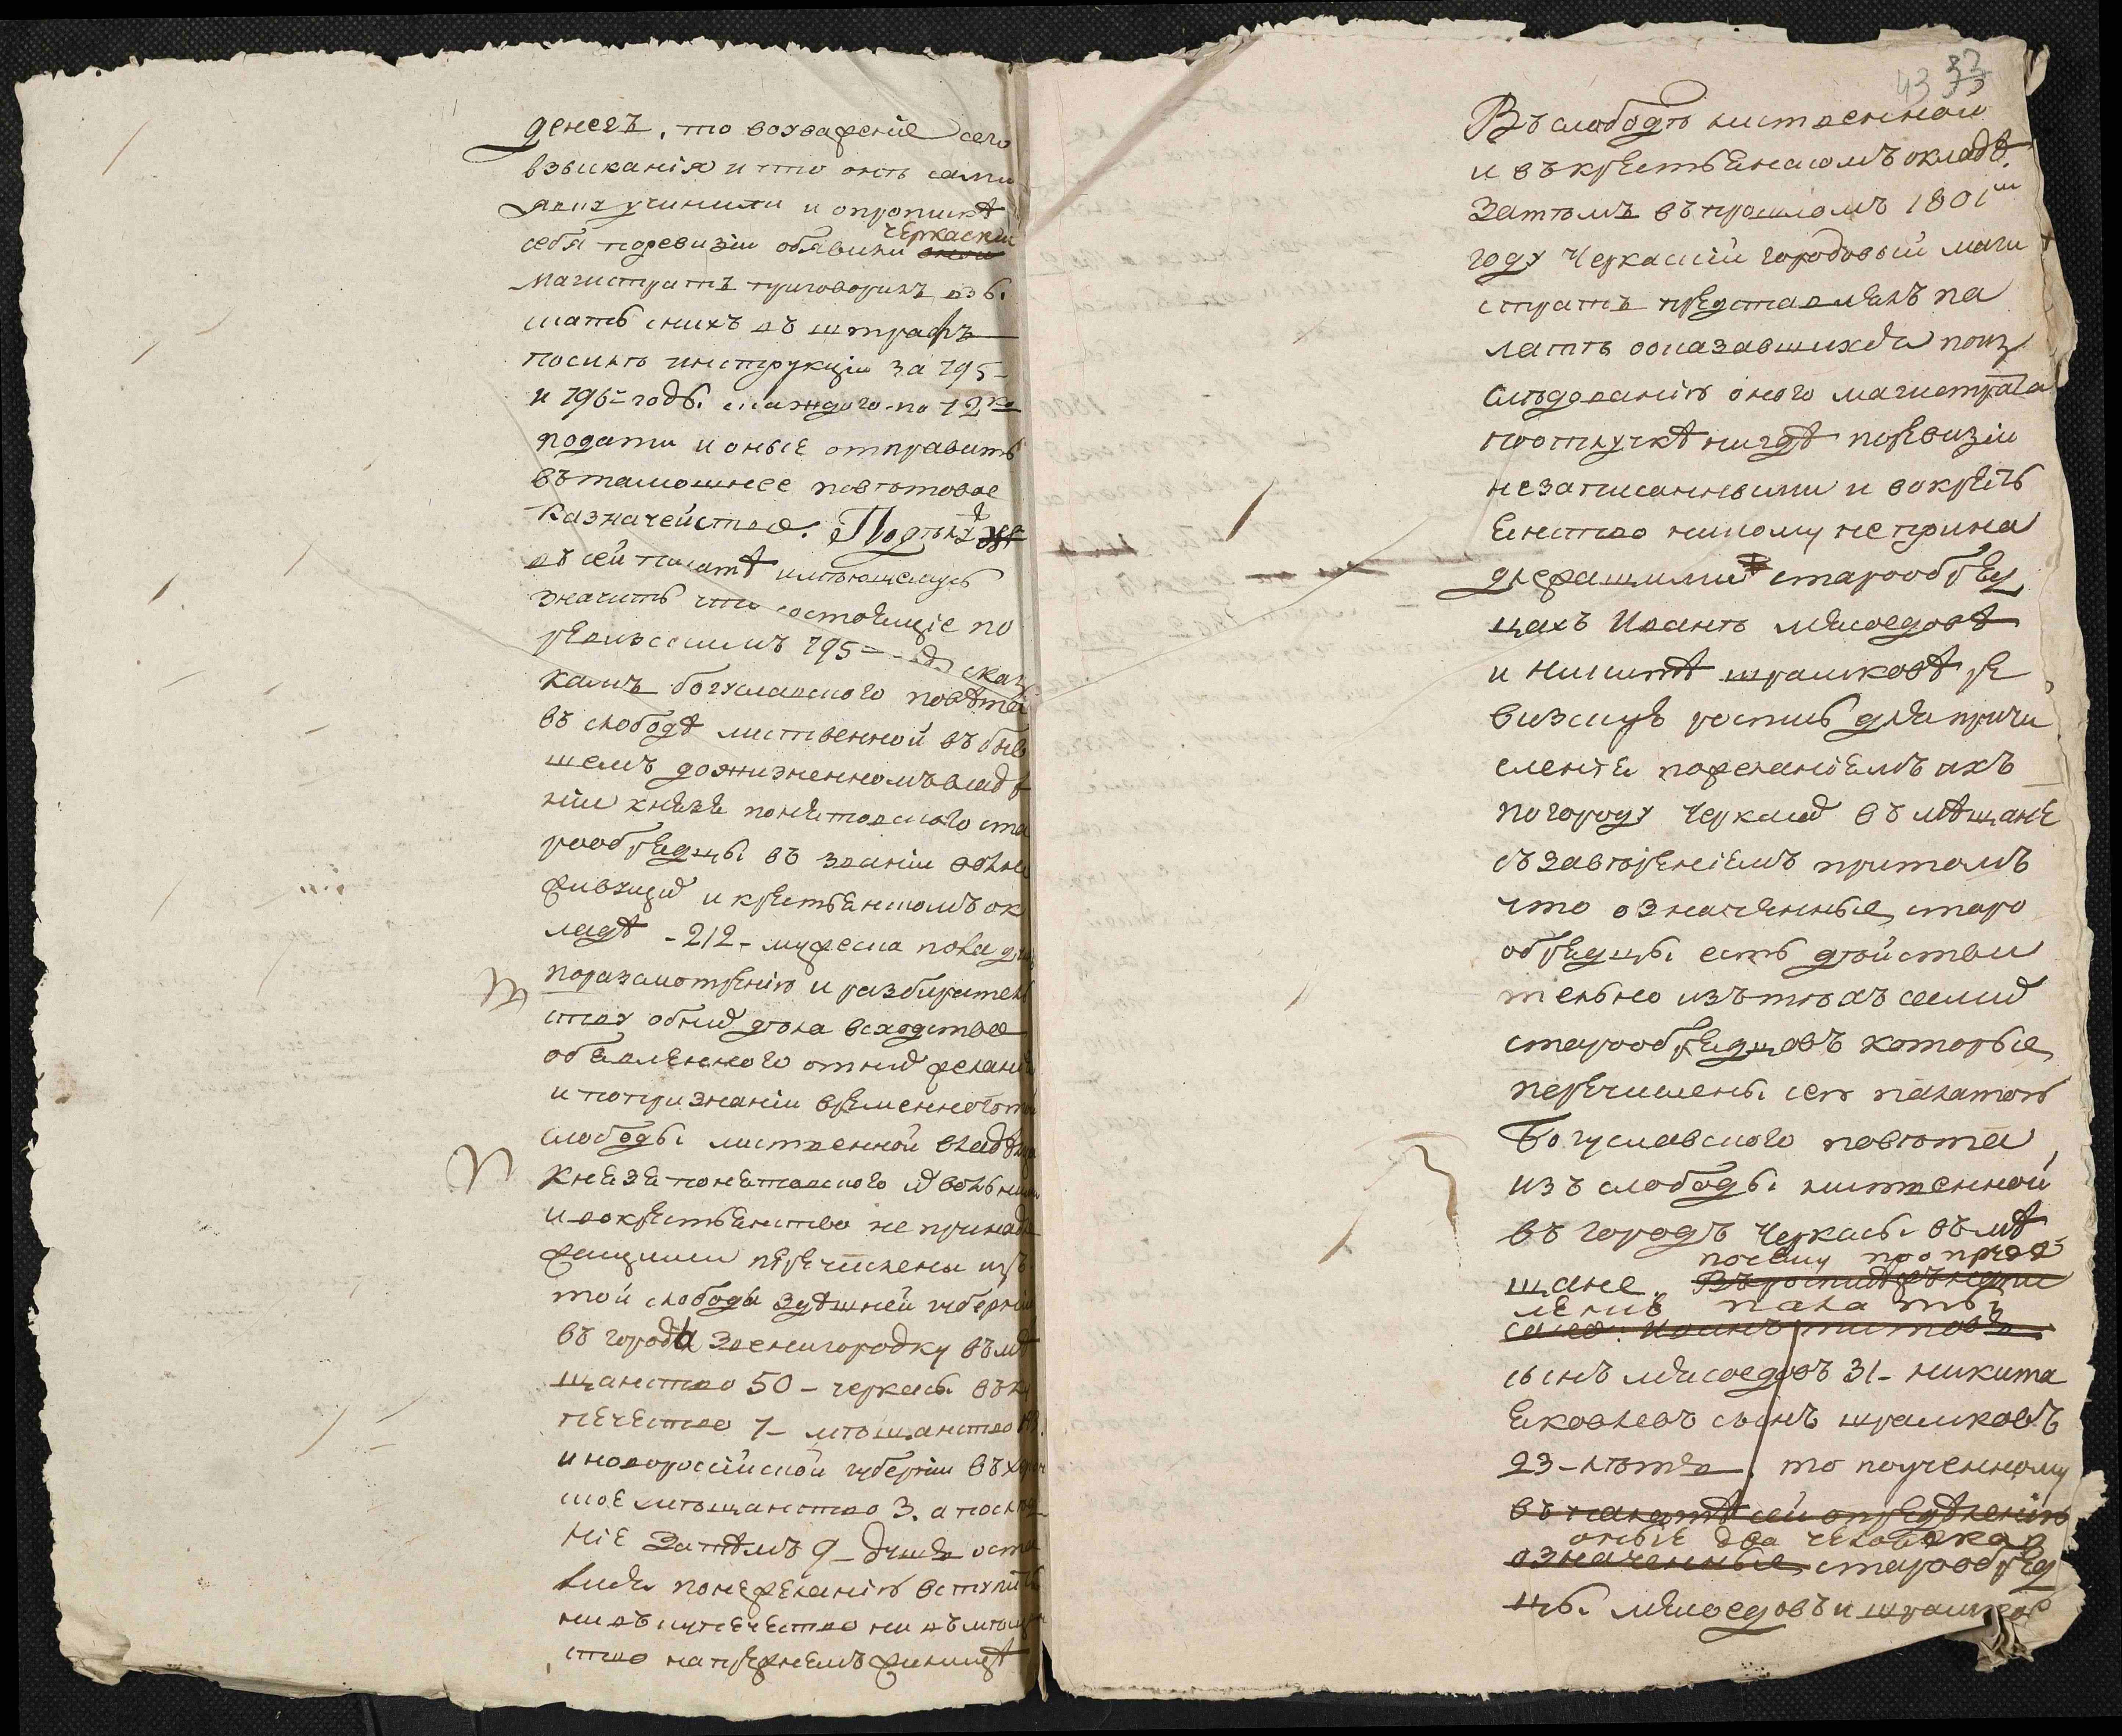 денегъ, то воуважение сего
взысканія и что онѣ сами
явку учинили и опропискѣ
себя поревизіи объявили черкаскій
онои
магистратъ приговорилъ взы
скать снихъ въ штрафъ
посилѣ инструкціи за 795-
и 796-годы скаждого по 12 ко
подати и оные отправить
въ тамошнее повѣтовое
казначейство. Подѣлу
въ сей палатѣ имѣющемусь
значитъ что состоящіе по
ревизскимъ 795 году сказ
камъ богуславского повѣта
въ слободѣ лиственной въ быв
шемъ дожизненномъ владѣ
ніи князя понятовского ста
рообрядцы въ званіи
живущихъ и крестьянскомъ ок
ладѣ -212- мужеска пола душъ
поразсмотрѣнію и разбиратель
ству обнихъ дѣла всходство
объявленного отнихъ желанія
и попризнаніи временного той
слободы лиственной владѣльца
князя понятовского ихъ вольными
и вокрестьянство не принадле
жащими перечислены изъ
той слободы здѣшней губерніи
въ города Звенигородку въ мѣ
щанство 50 - черкасы въ ку
печество 7 - мѣщанство
и новороссійской губерніи въ
ское мѣщанство 3. а послѣд
ніе Затѣмъ 9 - душъ оста
лися понежеланію вступить
ни въ купечество ни въ мѣщан
ство напрежнемъ жилищѣ
43 33
Въ слободѣ лиственной
и въ крестьянскомъ окладѣ.
Затѣмъ въ прошломъ 1801м
году Черкаскій городовый маги
стратъ представлялъ па
латѣ ооказавшихся поиз
слѣдованію оного магистрата
поотлучкѣ нигдѣ поревизіи
незаписанными и вокресть
янство никому не прина
длежащими старообряд
цахъ Иванѣ мясоедовѣ
и никитѣ шрамковѣ ре
визскую роспись для причи
сленія пожеланіемъ ихъ
погороду Черкасъ въ мѣщане
съ завѣреніемъ притомъ
что означенные старо
обрядцы есть дѣйстви
тельно изътѣхъ самихъ
старообрядцовъ которые
перечислены сею палатою
Богуславского повѣта
изъ слободы лиственной
въ городъ Черкасы въ мѣ
почему по опредѣ
щане.
лению палаты
сано: Иванъ титовъ
сынъ мясоедовъ 31 - никита
яковлевъ сынъ шрамковъ
23 - лѣтъ, то поученному
въ палатѣ сей опредѣленію
оные два человѣка
означенные старообряд
цы мясоедовъ и шрамков